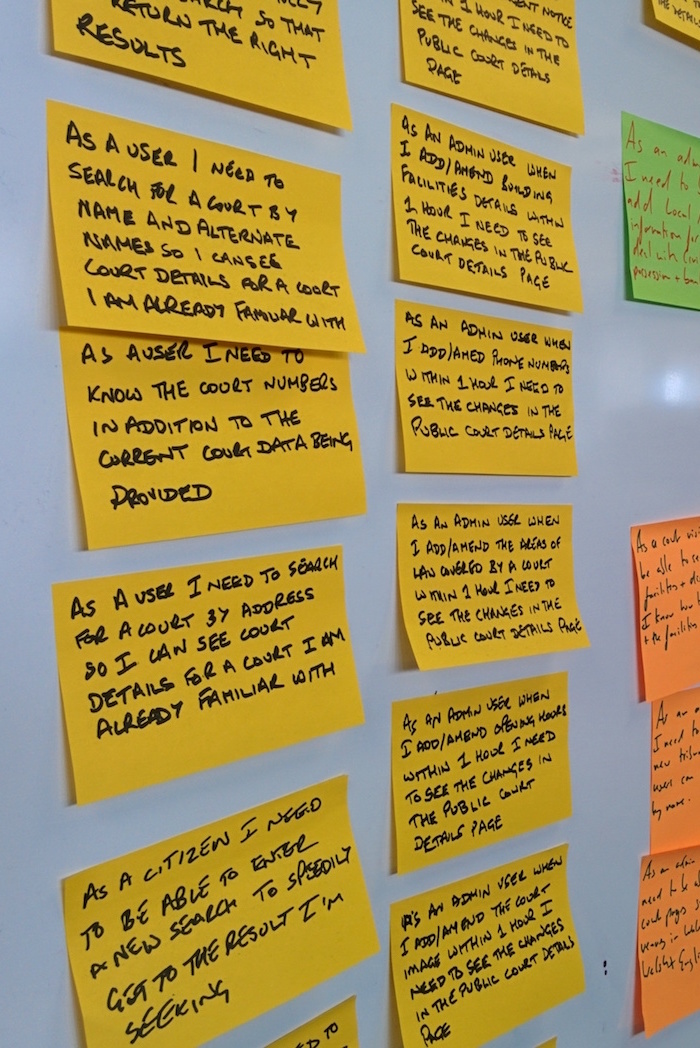 SO THAT
RETURN THE RIGHT
RESULTS
AS A USER I NEED TO
SEARCH FOR A COURT BY
NAME AND ALTERNATE
NAMES SO I CAN SEE
COURT DETAILS FOR A COURT
I AM ALREADY FAMILIAR WITH
AS A USER I NEED TO
KNOW THE COURT NUMBERS
IN ADDITION TO THE
CURRENT COURT DATA BEING
PROVIDED
AS A USER I NEED TO SEARCH
FOR A COURT BY ADDRESS
SO I CAN SEE COURT
DETAILS FOR A COURT I AM
ALREADY FAMILIAR WITH
AS A CITIZEN I NEED
TO BE ABLE TO ENTER
A NEW SEARCH TO SPEEDILY
GET TO THE RESULT I'M
SEEKING
NOTICE
IN 1 HOUR I NEED TO
SEE THE CHANGES IN THE
PUBLIC COURT DETAILS
PAGE
AS AN ADMIN USER WHEN
I ADD/AMEND BUILDING
FACILITIES DETAILS WITHIN
1 HOUR I NEED TO SEE
THE CHANGES IN THE PUBLIC
COURT DETAILS PAGE
AS AN ADMIN USER WHEN
I ADD/AMED PHONE NUMBERS
WITHIN 1 HOUR I NEED TO
SEE THE CHANGES IN THE
PUBLIC COURT DETAILS PAGE
AS AN ADMIN USER WHEN
I ADD/AMEND THE AREAS OF
LAW COVERED BY A COURT
WITHIN 1 HOUR I NEED TO
SEE THE CHANGES IN THE
PUBLIC COURT DETAILS PAGE
AS AN ADMIN USER WHEN
I ADD/AMEND OPENING HOURS
WITHIN 1 HOUR I NEED
TO SEE THE CHANGES IN
THE PUBLIC COURT
DETAILS PAGE
AS AN ADMIN USER WHEN
I ADD/AMEND THE COURT
IMAGE WITHIN 1 HOUR I
NEED TO SEE THE CHANGES
IN THE PUBLIC COURT DETAILS
PAGE
As an
I need to
add local
information for
deal with
possession +
As a court
be able to
facilities +
I know
+ the facilities
As an
I need to
new
user can
by name.
As an admin
need to be
court pages